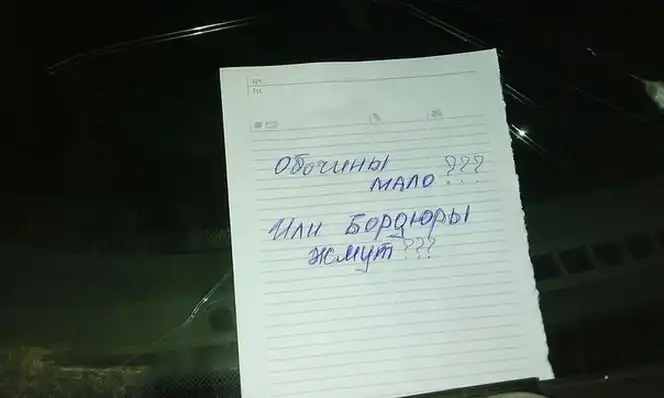 Обочины ???
мало
Или Бордюры
жмут ???